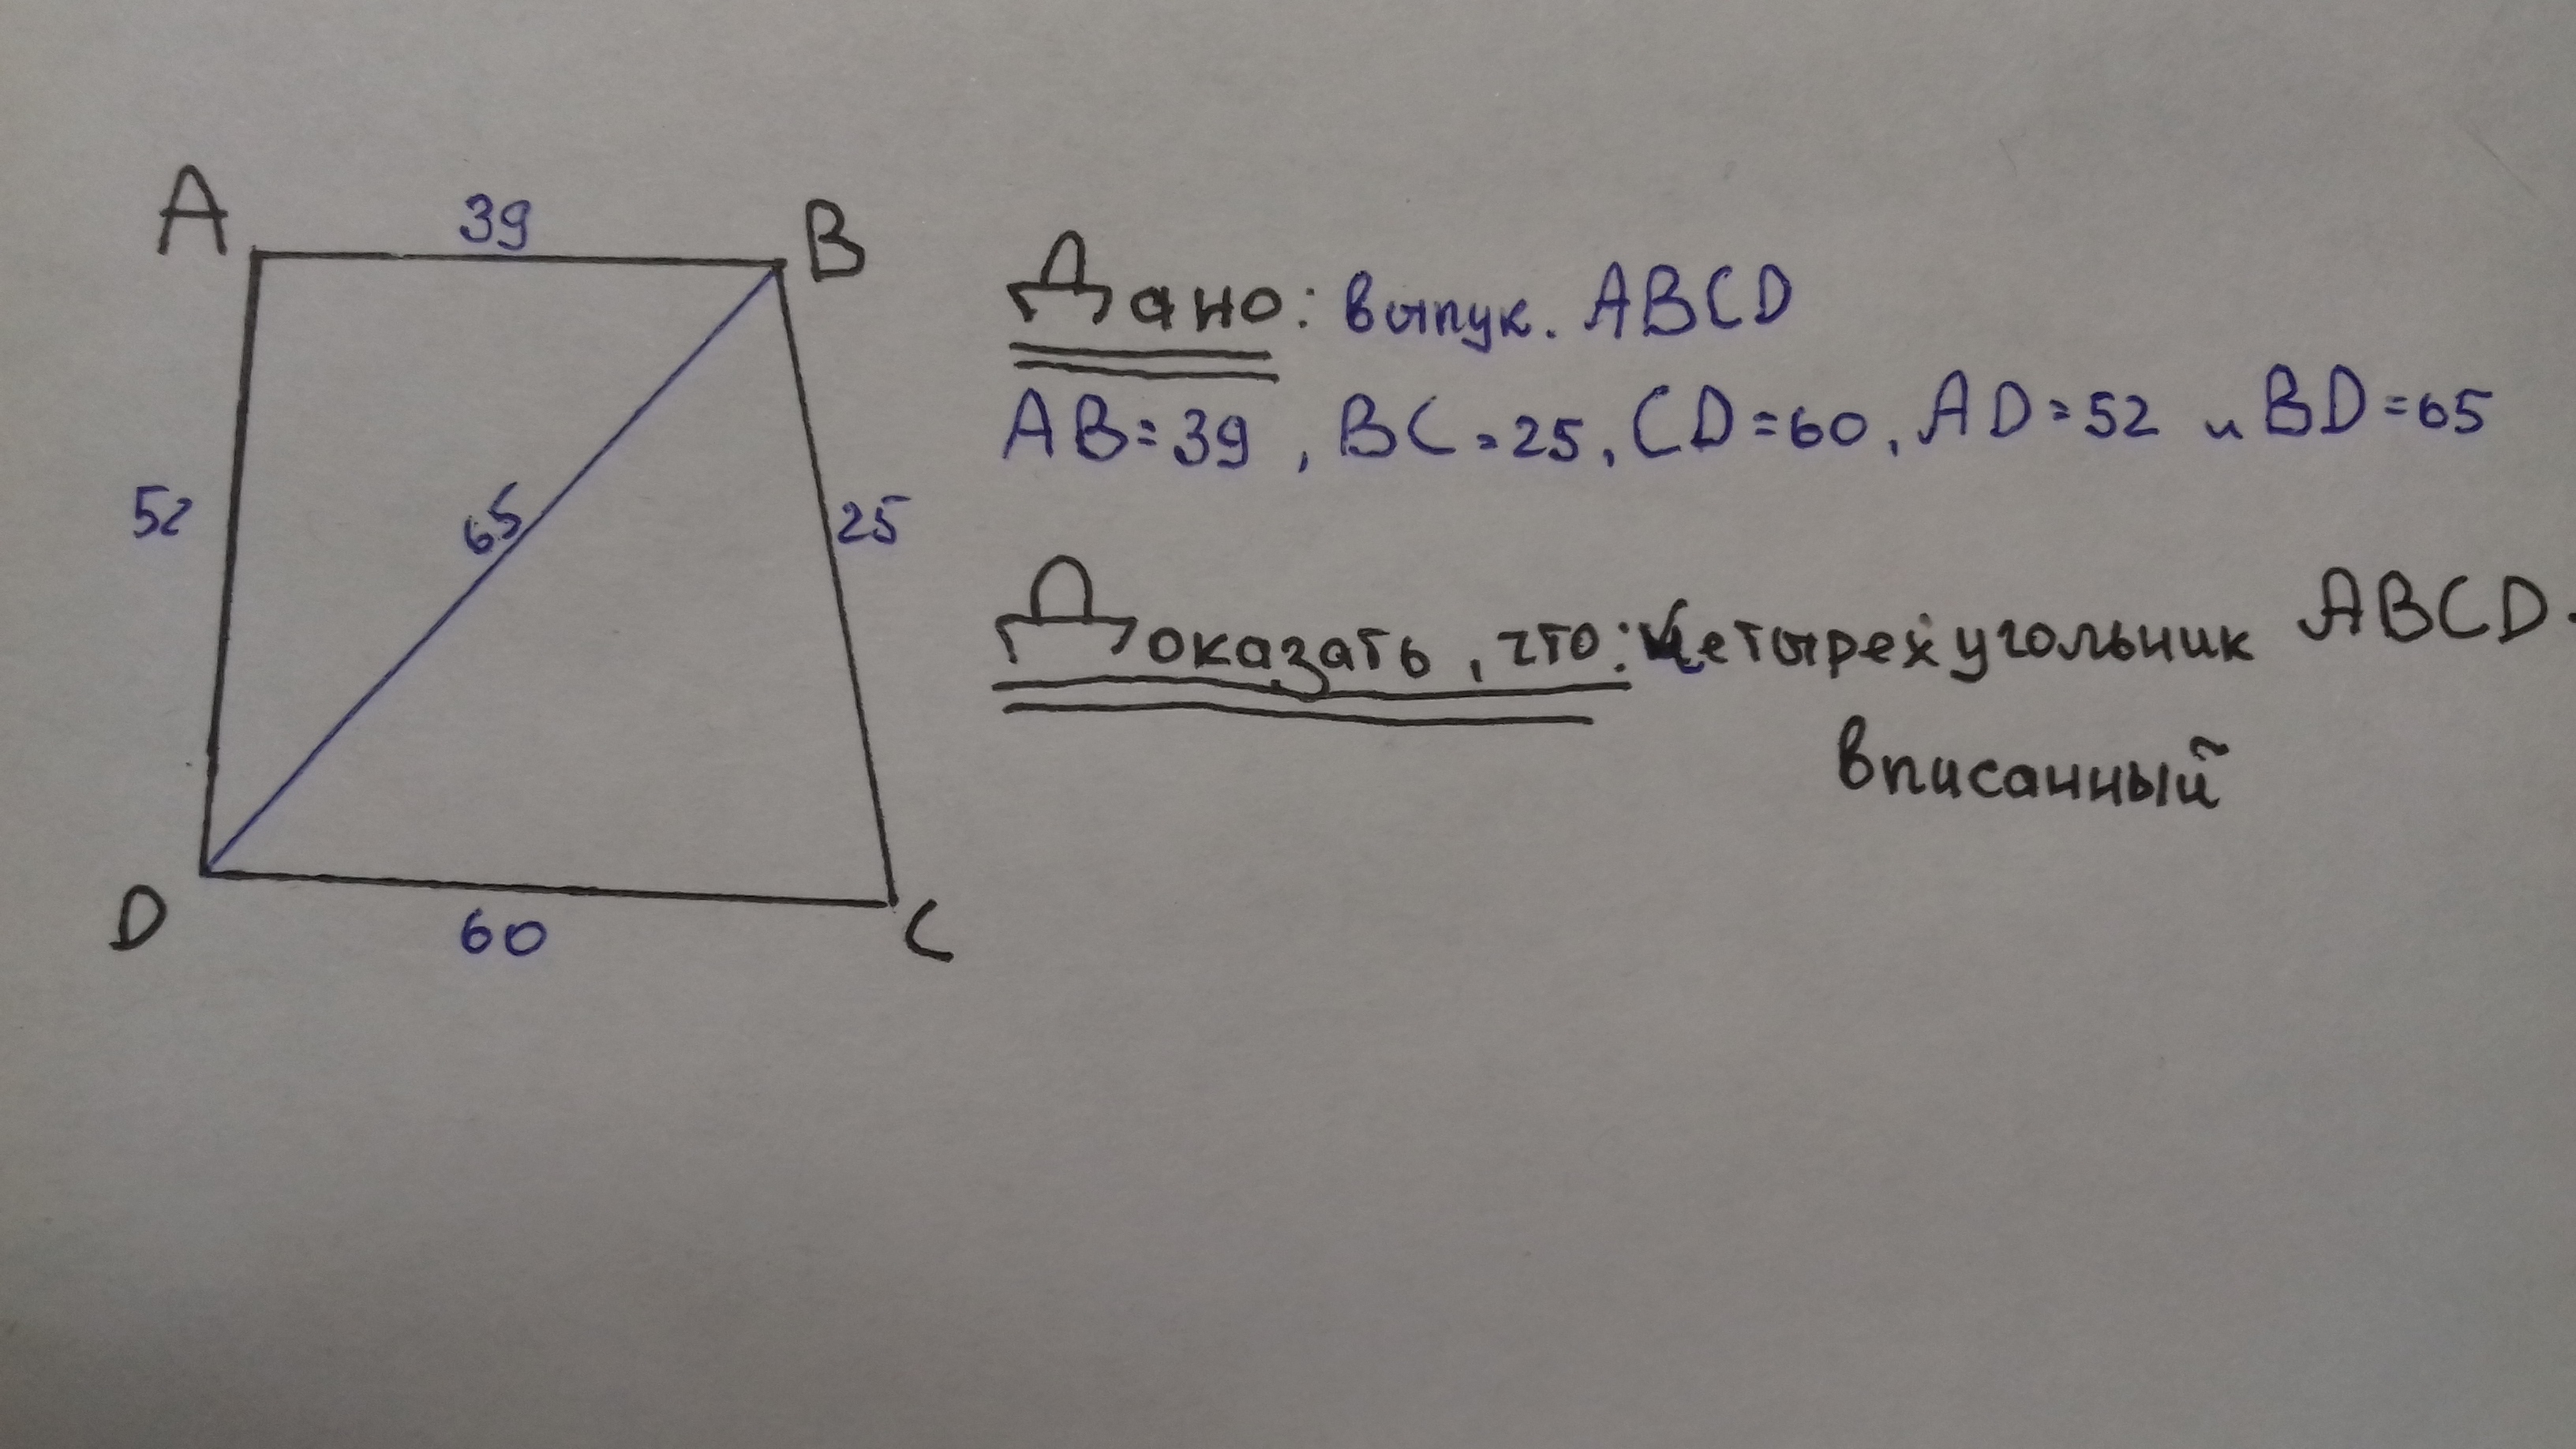 A
39
B
52
65
25
D
60
C
Дано: выпук. ABCD
AB=39, BC=25, CD=60, AD=52 и BD=65
Доказать, что: четырехугольник ABCD.
вписанный